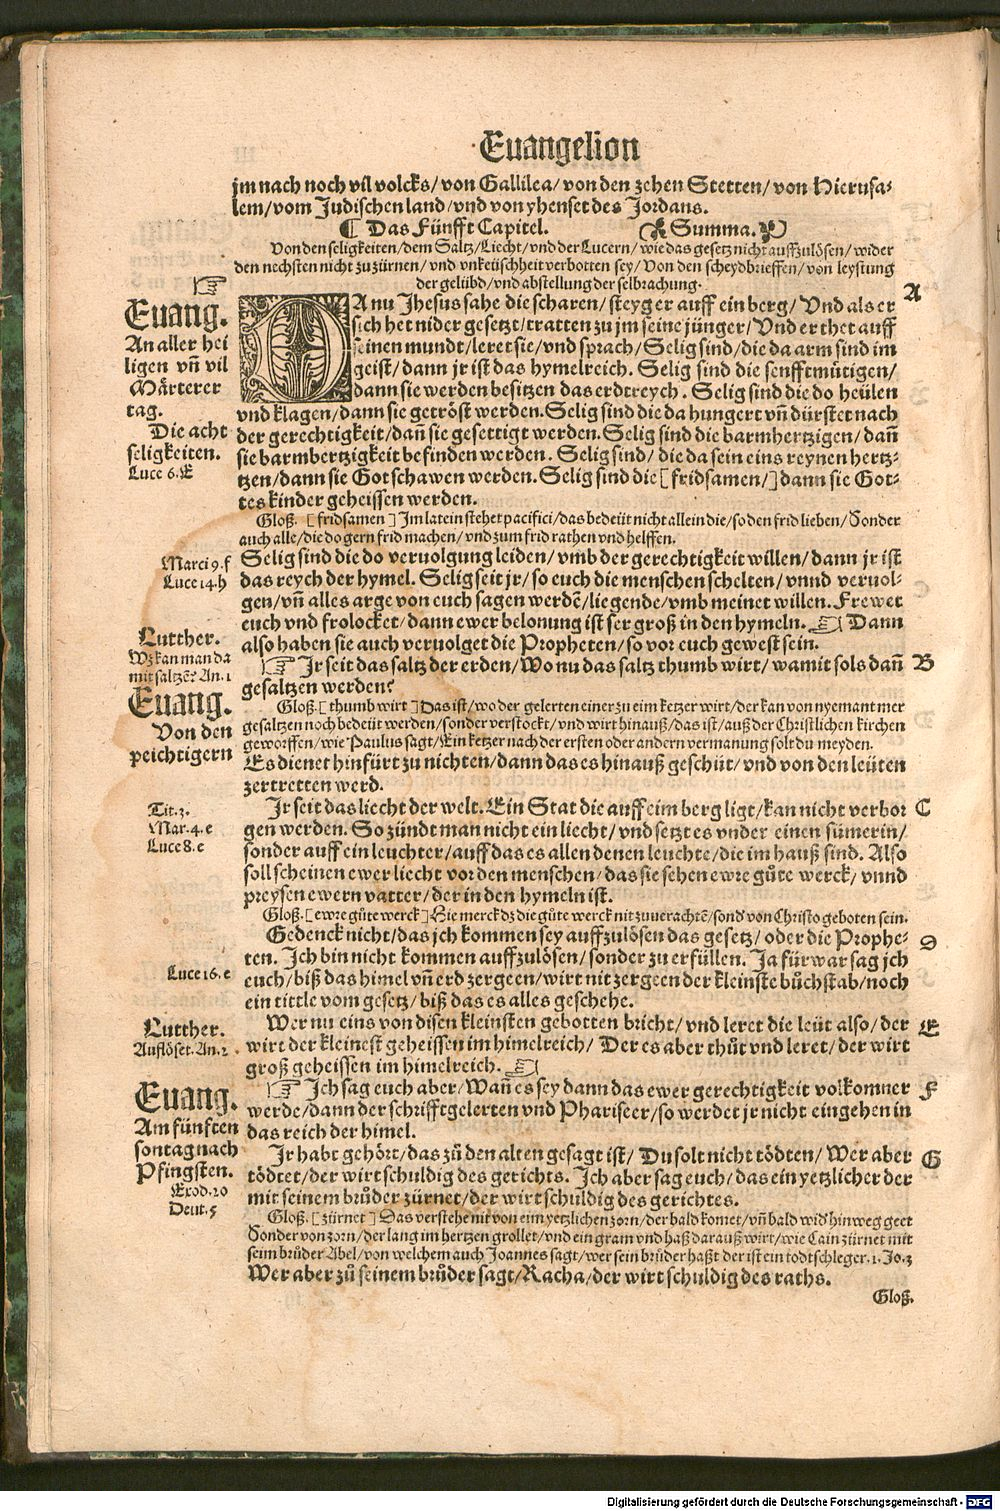 Euangelion
jm nach noch vil volcks/ von Gallilea/ von den zehen Stetten/ von Hierusa-
lem/ vom Judischen land/ vnd von yhenset des Jordans.
¶ Das Fünfft Capitel. Summa.
Von den seligkeiten/ dem Saltz/ Liecht/ vnd der Lucern/ wie das gesetz nicht auffzulösen/ wider
den nechsten nicht zu zürnen/ vnd vnkeüschheit verbotten sey/ Von den scheydbrieffen/ von leystung
der gelübd/ vnd abstellung der selbrachung.
Euang.
An aller hei
ligen vñ vil
Märterer
tag.
Die acht
seligkeiten.
Luce 6. E
A
DA nu Jhesus sahe die scharen/ steyg er auff ein berg/ Vnd als er
sich het nider gesetzt/ tratten zu jm seine jünger/ Vnd er thet auff
seinen mundt/ leret sie/ vnd sprach/ Selig sind/ die da arm sind im
geist/ dann jr ist das hymelreich. Selig sind die senfftmütigen/
dann sie werden besitzen das erdtreych. Selig sind die do heülen
vnd klagen/ dann sie getröst werden. Selig sind die da hungert vñ dürstet nach
der gerechtigkeit/ dañ sie gesettigt werden. Selig sind die barmhertzigen/ dañ
sie barmhertzigkeit befinden werden. Selig sind/ die da sein eins reynen hertz-
tzen/ dann sie Got schawen werden. Selig sind die [fridsamen/] dann sie Got-
tes kinder geheissen werden.
Gloß. [fridsamen] Im latein stehet pacifici/ das bedeüt nicht allein die/ so den frid lieben/ Sonder
auch alle/ die do gern frid machen/ vnd zum frid rathen vnd helffen.
Marci 9. f
Luce 14. h
Selig sind die do veruolgung leiden/ vmb der gerechtigkeit willen/ dann jr ist
das reych der hymel. Selig seit jr/ so euch die menschen schelten/ vnnd veruol-
gen/ vñ alles arge von euch sagen werdē/ liegende/ vmb meinet willen. Frewet
euch vnd frolocket/ dann ewer belonung ist ser groß in den hymeln. Dann
also haben sie auch veruolget die Propheten/ so vor euch gewest sein.
Lutther.
Wz kan man da
mit saltzē? An. 1
Euang.
Von den
peichtigern
B
Jr seit das saltz der erden/ Wo nu das saltz thumb wirt/ wamit sols dañ
gesaltzen werden?
Gloß. [thumb wirt] Das ist/ wo der gelerten einer zu eim ketzer wirt/ der kan von nyemant mer
gesaltzen noch bedeüt werden/ sonder verstockt/ vnd wirt hinauß/ das ist/ auß der Christlichen kirchen
geworffen/ wie Paulus sagt/ Ein ketzer nach der ersten oder andern vermanung solt du meyden.
Es dienet hinfürt zu nichten/ dann das es hinauß geschüt/ vnd von den leüten
zertretten werd.
Tit. 3.
Mar. 4. e
Luce 8. e
C
Jr seit das liecht der welt. Ein Stat die auff eim berg ligt/ kan nicht verbor
gen werden. So zündt man nicht ein liecht/ vnd setzt es vnder einen sümerin/
sonder auff ein leuchter/ auff das es allen denen leuchte/ die im hauß sind. Also
soll scheinen ewer liecht vor den menschen/ das sie sehen ewre gůte werck/ vnnd
preysen ewern vatter/ der in den hymeln ist.
Gloß. [ewre gůte werck] Hie merck dz die gůte werck nit zuuerachtē/ sond' von Christo geboten sein.
D
Gedenck nicht/ das jch kommen sey auffzulösen das gesetz/ oder die Prophe-
ten. Jch bin nicht kommen auffzulösen/ sonder zu erfüllen. Ja fürwar sag jch
euch/ biß das himel vñ erd zergeen/ wirt nit zergeen der kleinste bůchstab/ noch
ein tittle vom gesetz/ biß das es alles geschehe.
Luce 16. e
Lutther.
Auflöset. An. 2
E
Wer nu eins von disen kleinsten gebotten bricht/ vnd leret die leüt also/ der
wirt der kleinest geheissen im himelreich/ Der es aber thůt vnd leret/ der wirt
groß geheissen im himelreich.
Euang.
Am fünften
sontag nach
Pfingsten.
Exod. 20
Deut. 5
F
Jch sag euch aber/ Wañ es sey dann das ewer gerechtigkeit volkomner
werde/ dann der schrifftgelerten vnd Phariseer/ so werdet jr nicht eingehen in
das reich der himel.
G
Jr habt gehört/ das zů den alten gesagt ist/ Du solt nicht tödten/ Wer aber
tödtet/ der wirt schuldig des gerichts. Jch aber sag euch/ das ein yetzlicher der
mit seinem brůder zürnet/ der wirt schuldig des gerichtes.
Gloß. [zürnet] Das verstehe nit von eim yetzlichen zorn/ der bald komet/ vñ bald wid' hinweg geet
Sonder von zorn/ der lang im hertzen grollet/ vnd ein gram vnd haß darauß wirt/ wie Cain zürnet mit
seim brůder Abel/ von welchem auch Joannes sagt/ wer sein brůder haßt der ist ein todtschleger. 1. Jo. 3
Wer aber zů seinem brůder sagt/ Racha/ der wirt schuldig des raths.
Gloß.
Digitalisierung gefördert durch die Deutsche Forschungsgemeinschaft - DFG